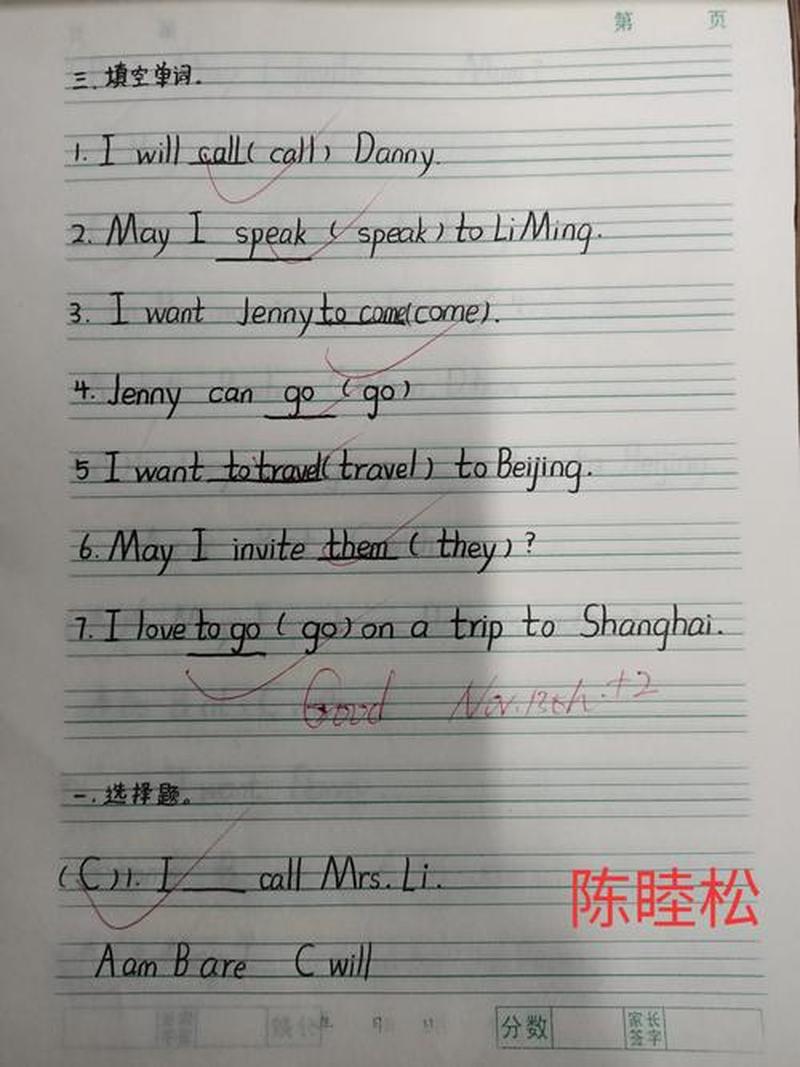 第 页
三.填空单词.
1. I will call(call) Danny.
2. May I speak (speak) to Li Ming.
3. I want Jenny to come(come).
4. Jenny can go (go)
5 I want to travel(travel) to Beijing.
6. May I invite them (they)?
7. I love to go (go) on a trip to Shanghai.
Good Nov.13th.+2
一.选择题。
(C)1. I ____ call Mrs. Li.
A am B are C will
陈睦松
分数 家长签字